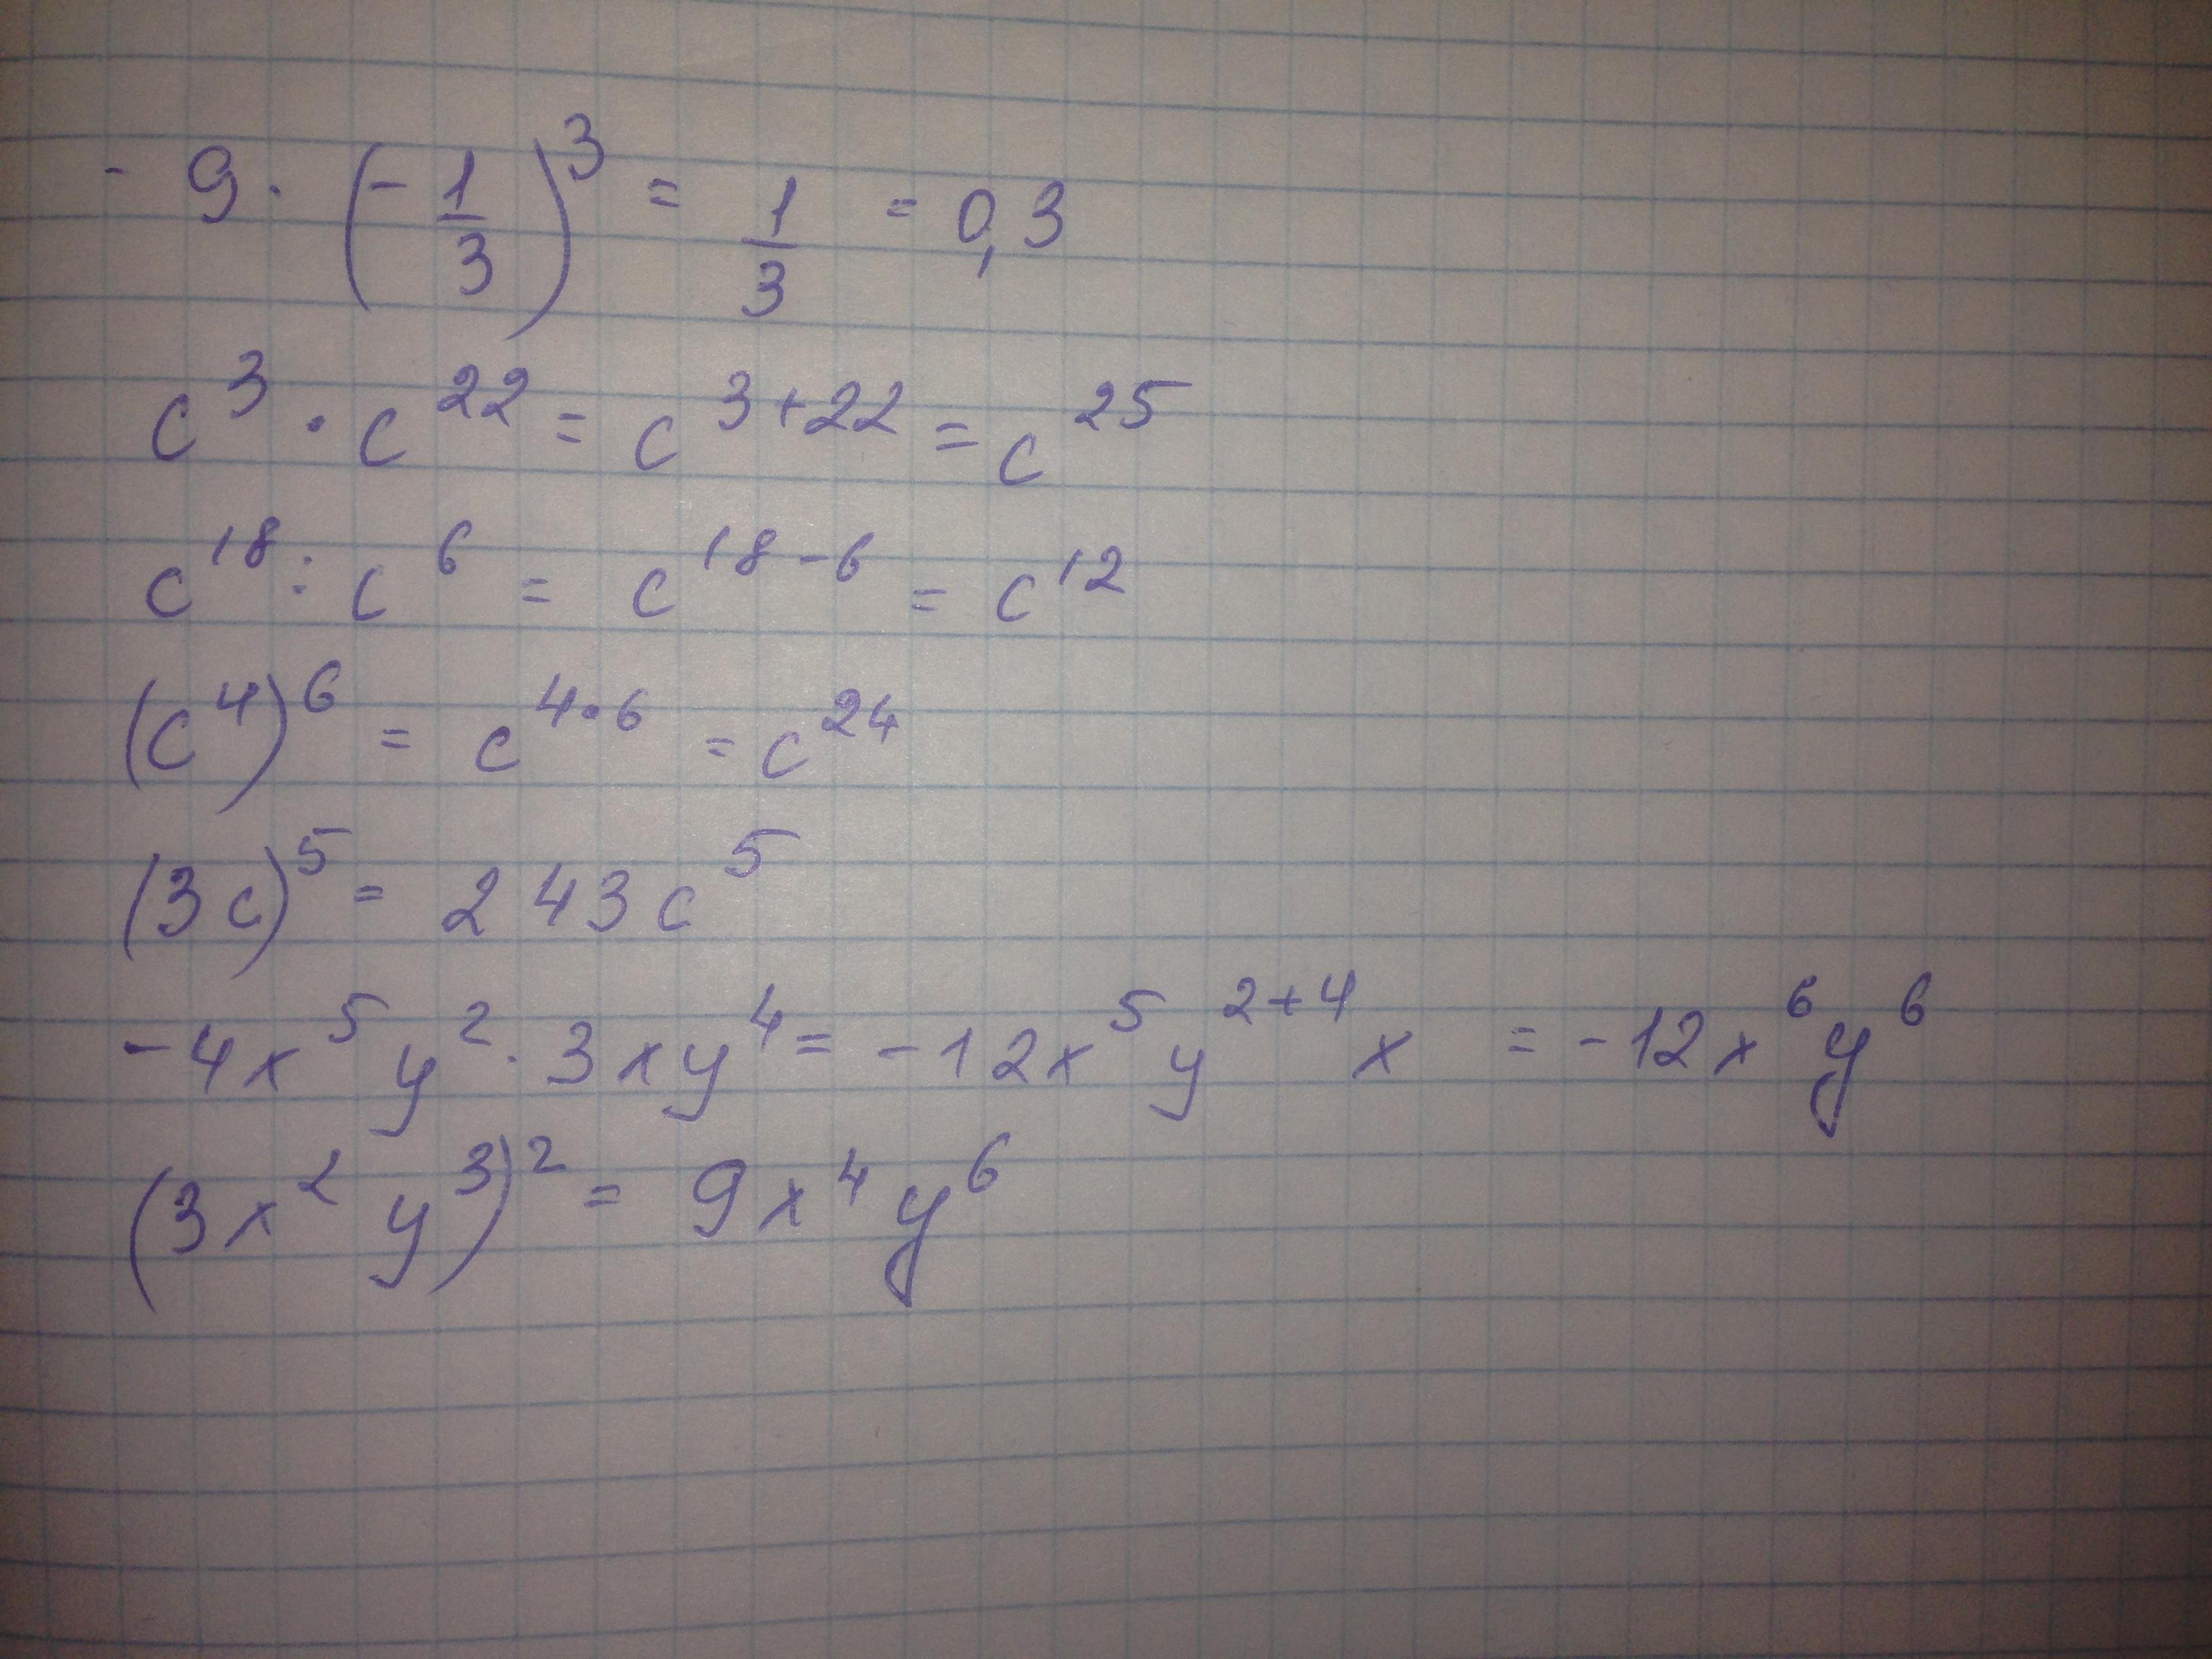 - 9 · (-1/3)³ = 1/3 = 0,3
c³ · c²² = c³⁺²² = c²⁵
c¹⁸ : c⁶ = c¹⁸⁻⁶ = c¹²
(c⁴)⁶ = c⁴˙⁶ = c²⁴
(3c)⁵ = 243c⁵
-4x⁵y² · 3xy⁴ = -12x⁵y²⁺⁴x = -12x⁶y⁶
(3x²y³)² = 9x⁴y⁶